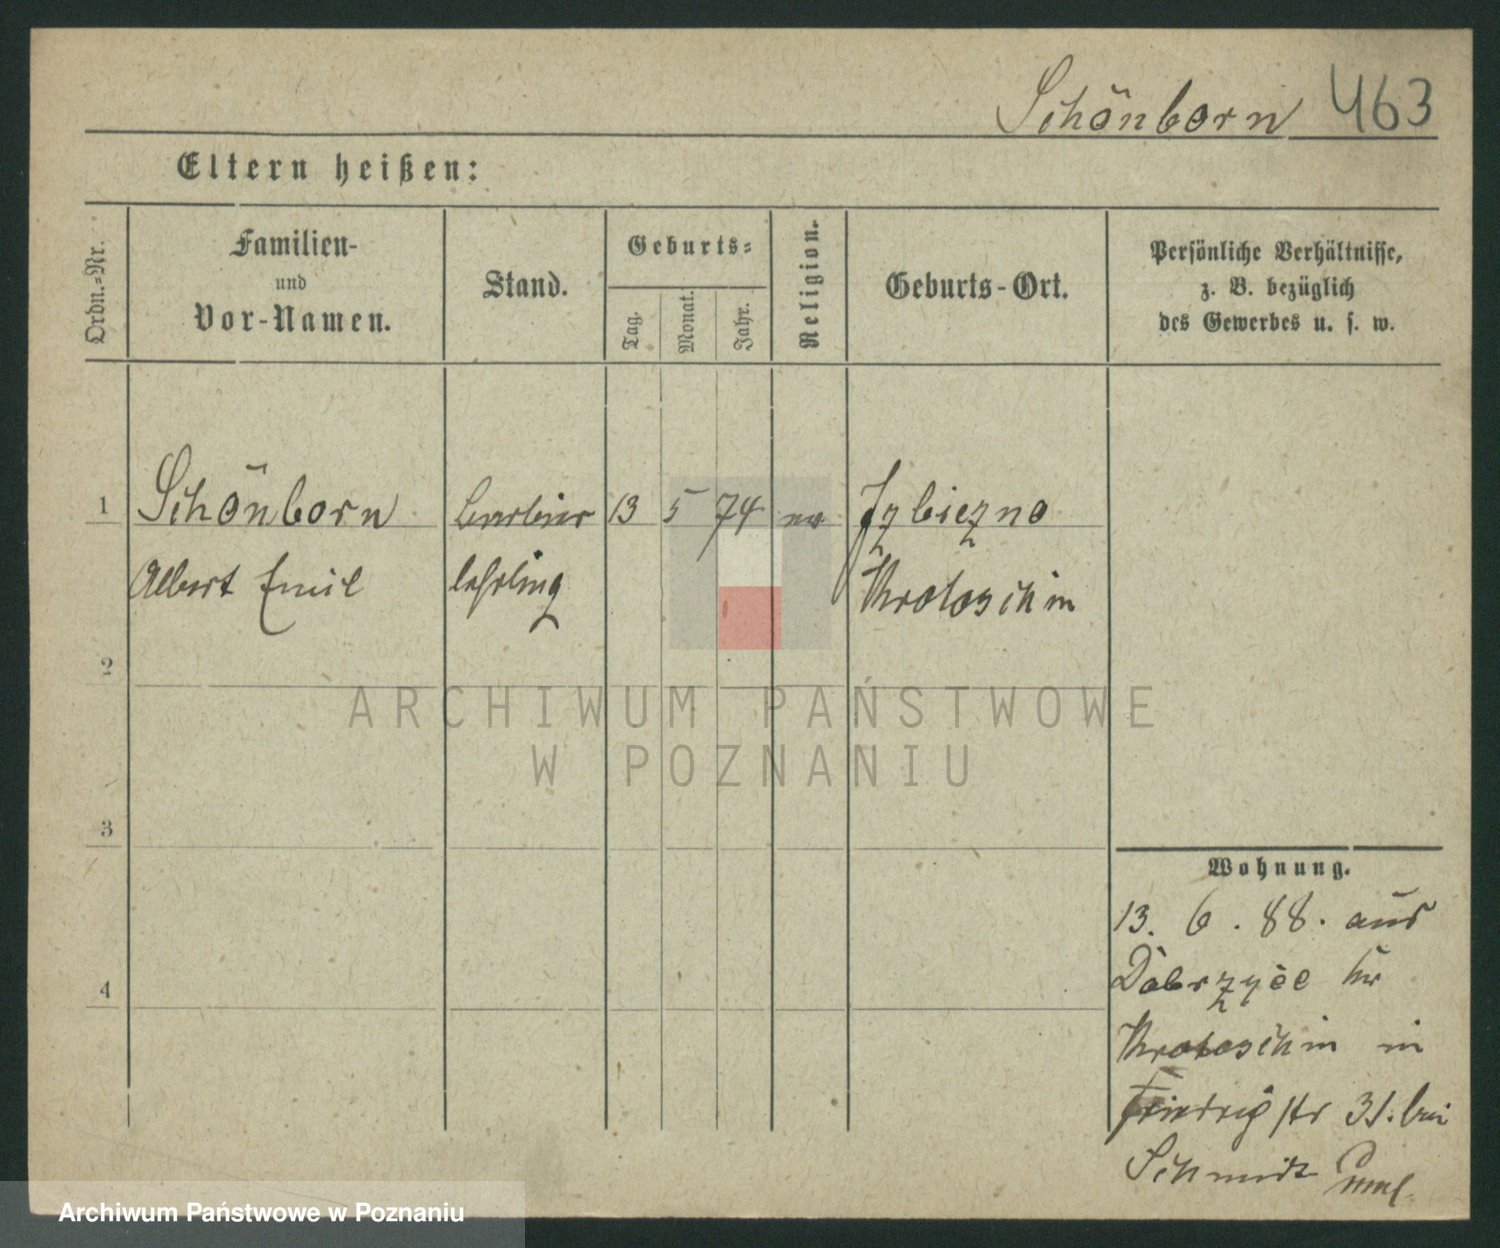 Schönborn 463
Eltern heißen:
Ordn.-Nr.
Familien-
und
Vor-Namen.
Stand.
Geburts-
Tag.
Monat.
Jahr.
Religion.
Geburts-Ort.
Persönliche Verhältnisse,
z. B. bezüglich
des Gewerbes u. s. w.
1 Schönborn Barbier 13 5 74 ev Izbiczno
Albert Emil lehrling Krotoschin
2
3
4
ARCHIWUM PAŃSTWOWE
W POZNANIU
Wohnung.
13. 6. 88. aus
Dobrzyce Kr
Krotoschin in
Friedrig str 31. bei
Schmidt
Archiwum Państwowe w Poznaniu